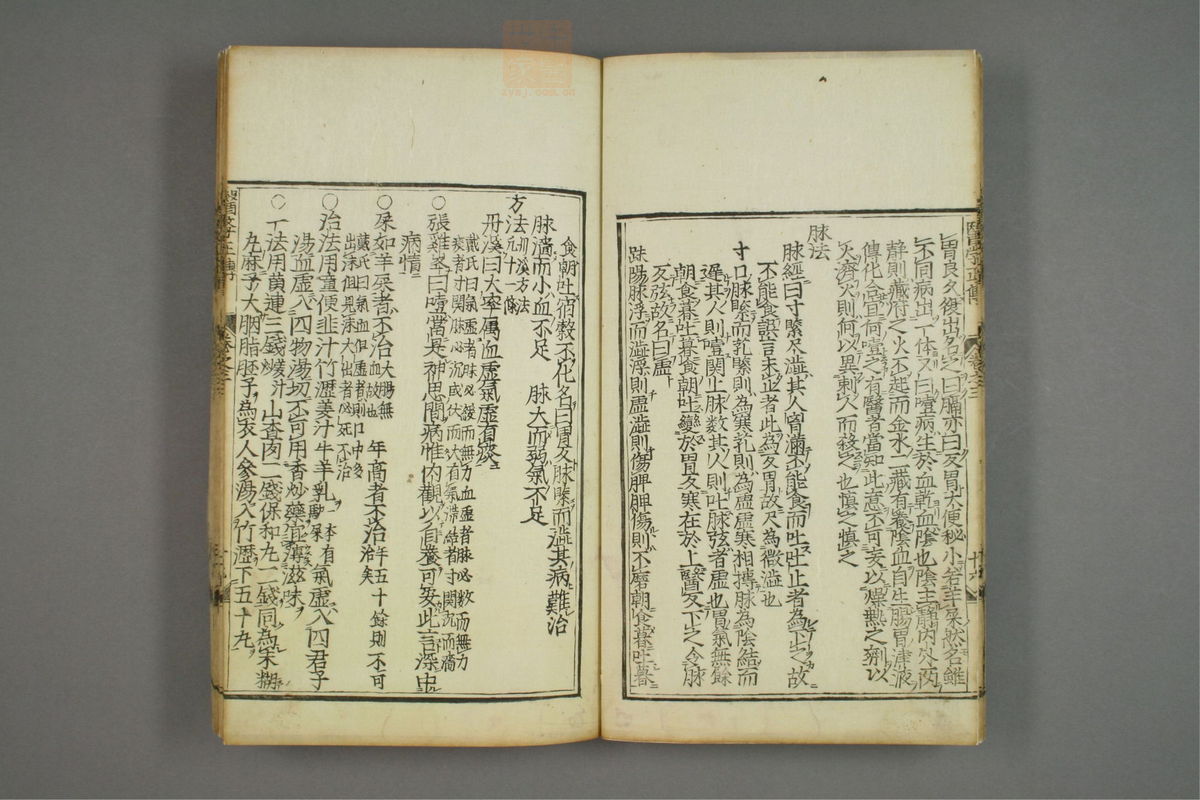 醫學正傳
卷之三
十六
皆良久復出名之曰膈亦曰反胃大便秘小若羊屎然名雖
不同病出一体又曰噎病生於血乾血陰也陰主靜内外兩
靜則藏府之火不起而金水二藏有養陰血自生腸胃津液
傳化合宜何噎之有醫者當知此意不可妄以燥熱之劑以
火濟火則何以異刺人而殺之也慎之慎之
脉法
脉經曰寸緊尺澁其人胷滿不能食而吐吐止者為下之故
不能食設言未止者此為反胃故尺為微澁也
寸口脉緊而芤緊則為寒芤則為虛虛寒相摶脉為陰結而
遲其人則噎關上脉數其人則吐脉弦者虛也胃氣無餘
朝食暮吐暮食朝吐變於胃反寒在於上醫反下之今脉
反弦故名曰虛
趺陽脉浮而澁浮則虛澁則傷脾脾傷則不磨朝食暮吐暮
食朝吐宿穀不化名曰胃反脉緊而澁其病難治
脉濇而小血不足　脉大而弱氣不足
方法 丹溪方法凡十一條
丹溪曰大率屬血虛氣虛有痰
戴氏曰氣虛者脉必緩而無力血虛者脉必數而無力
痰者寸關脉必沉或伏而大有氣滯結者寸關沉而濇
○張雞峯曰噎當是神思間病惟内觀以自養可安此言深中
病情
○屎如羊屎者不治 大腸無血故也　年高者不治 年五十餘則不可治矣
戴氏曰氣血俱虛者則口中多
出沫但見沫大出者必死不治
○治法用童便韭汁竹瀝姜汁牛羊乳 一本有馿尿 氣虛入四君子
湯血虛入四物湯切不可用香炒藥宜薄滋味
○一法用黄連三錢 姜汁炒 山査肉二錢保和丸二錢同為末糊
丸麻子大胭脂胚子為衣人參湯入竹瀝下五十丸
醫學正傳
卷之三